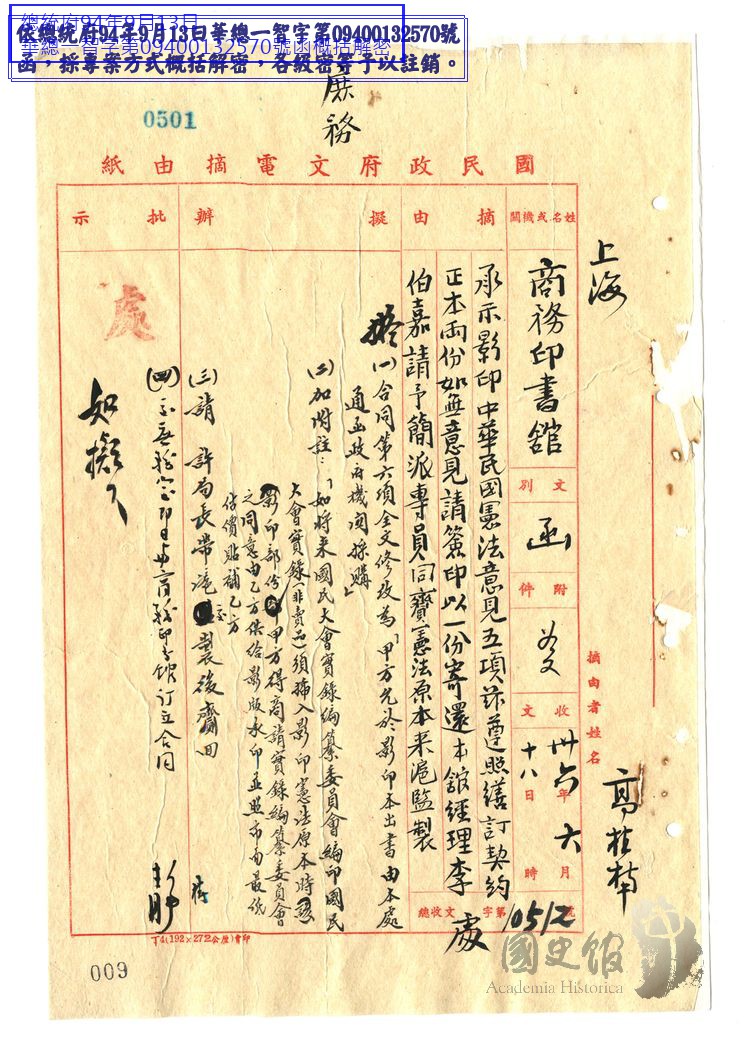 總統府94年9月13日
華總一智字第09400132570號函概括解密
依總統府94年9月13日華總一智字第09400132570號
函，採專案方式概括解密，各級密等予以註銷。
0501
庶務
國民政府文電摘由紙
姓名或機關
上海
商務印書舘
文別
函
附件
收文
卅六年六月十八日時
收文總字第10512號
處
摘由者姓名
高桂棽
摘由
承示影印中華民國憲法意見五項茲遵照繕訂契約
正本兩份如無意見請簽印以一份寄還本舘經理李
伯嘉請予簡派專員同賷憲法原本来滬監製
擬辦
擬
(一)合同第六項全文修改為「甲方允於影印本出書由本處
通函政府機関採購」
(二)加附註：「如将来國民大會實錄編纂委員會編印國民
大會實錄(非賣品)須插入影印憲法原本時該
影印部份 甲方得商請實錄編纂委員會
之同意由乙方供给影版承印並照市面最低
估價貼補乙方
(三)請 許局長帶滬 製後齎回
立合同
批示
處
如擬
丁4(192×272公厘)會印
009
國史館
Academia Historica